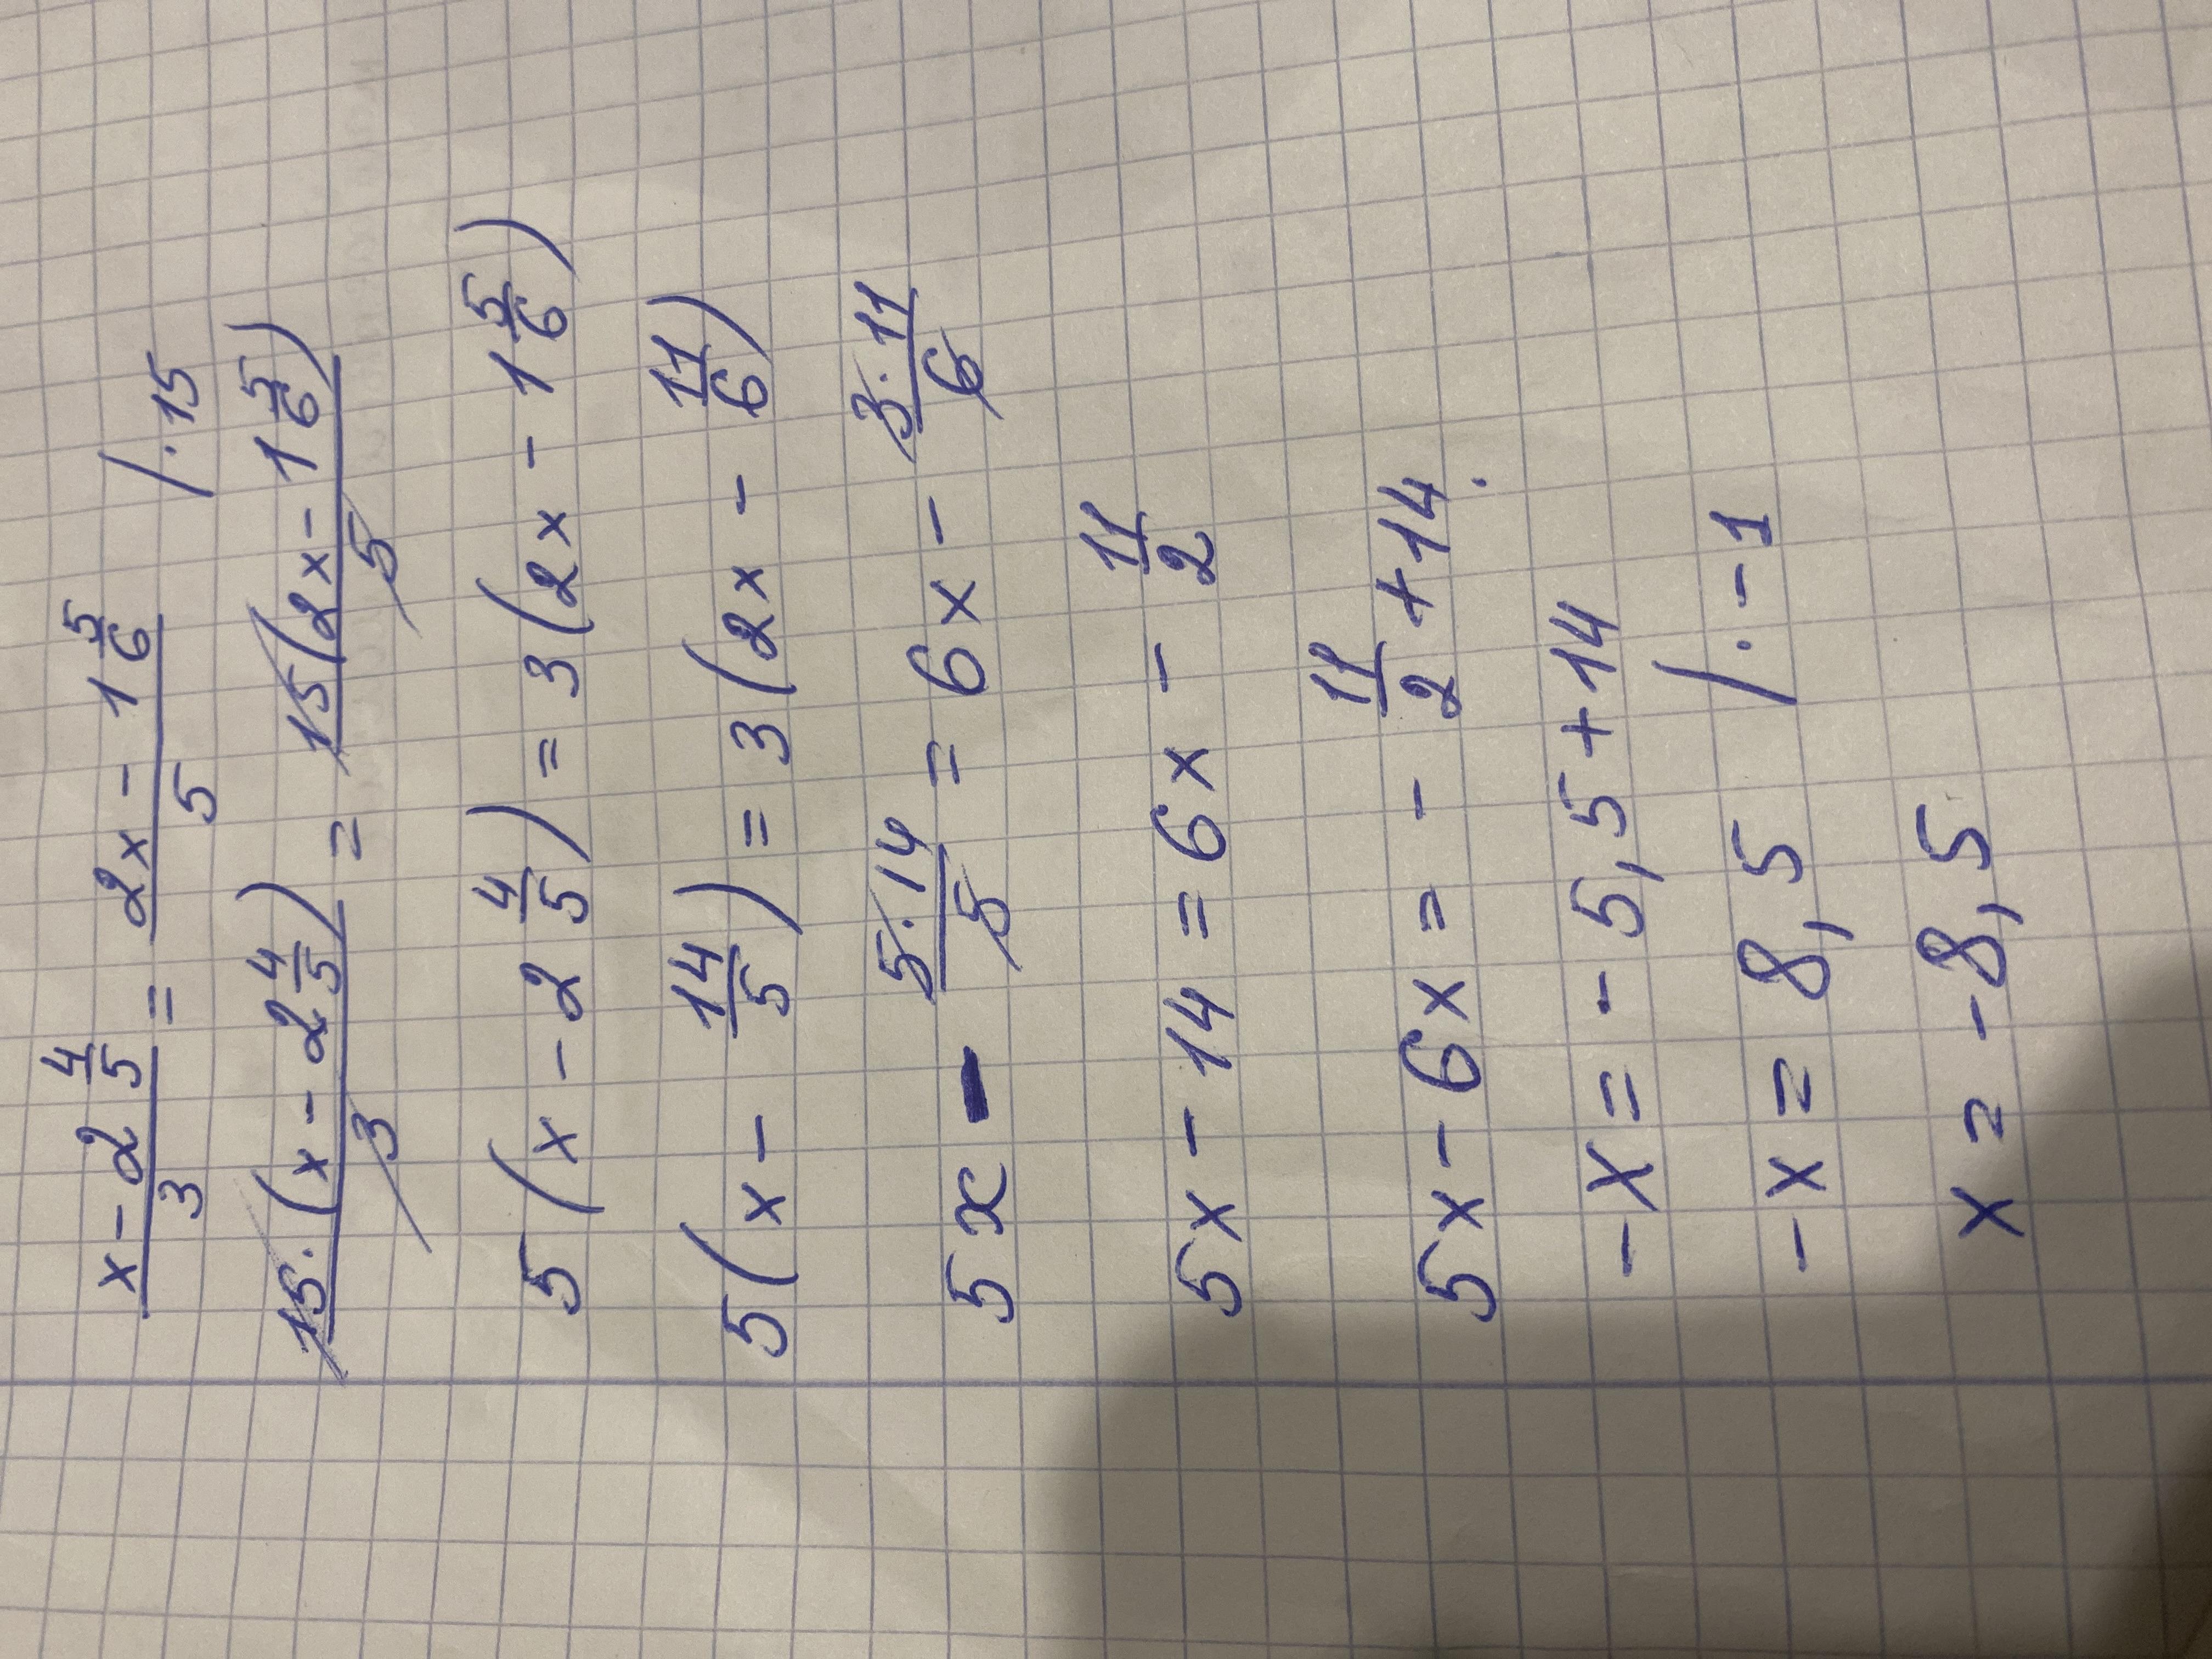 (x - 2 4/5)/3 = (2x - 1 5/6)/5 /·15
15·(x - 2 4/5)/3 = 15(2x - 1 5/6)/5
5(x - 2 4/5) = 3(2x - 1 5/6)
5(x - 14/5) = 3(2x - 11/6)
5x - 5·14/5 = 6x - 3·11/6
5x - 14 = 6x - 11/2
5x - 6x = - 11/2 + 14.
-x = -5,5 + 14
-x = 8,5 /·-1
x = -8,5